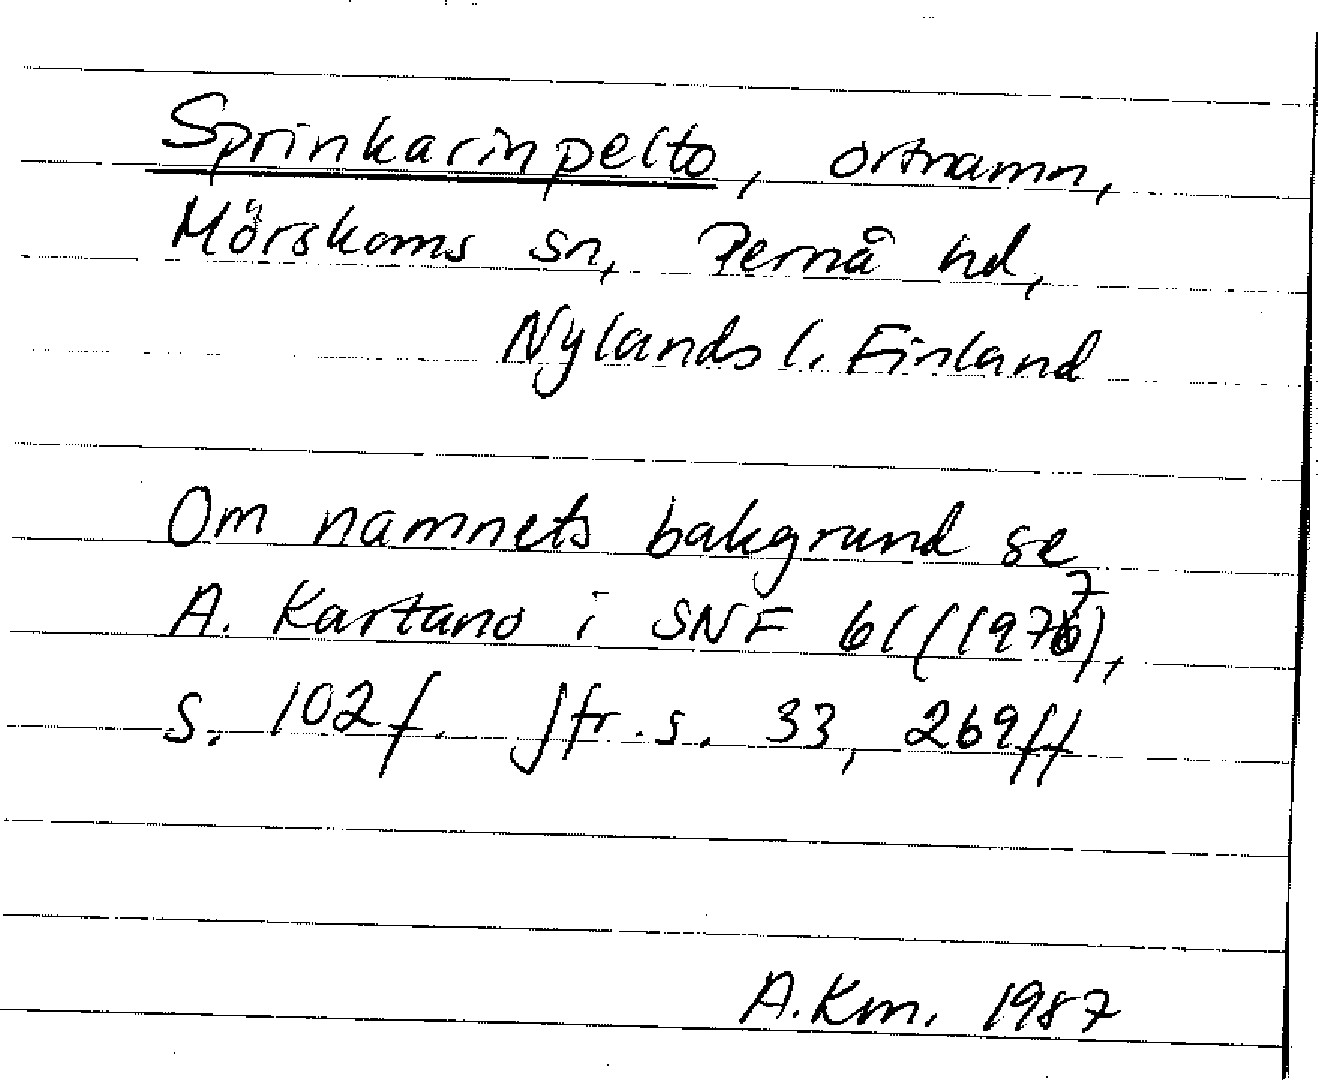 Sprinkarinpelto, ortnamn,
Mörskoms sn, Pernå hd,
Nylands l. Finland
Om namnets bakgrund se
A. Kartano i SNF 61 (1977),
s. 102f. Jfr. s. 33, 269ff
A.Km. 1987